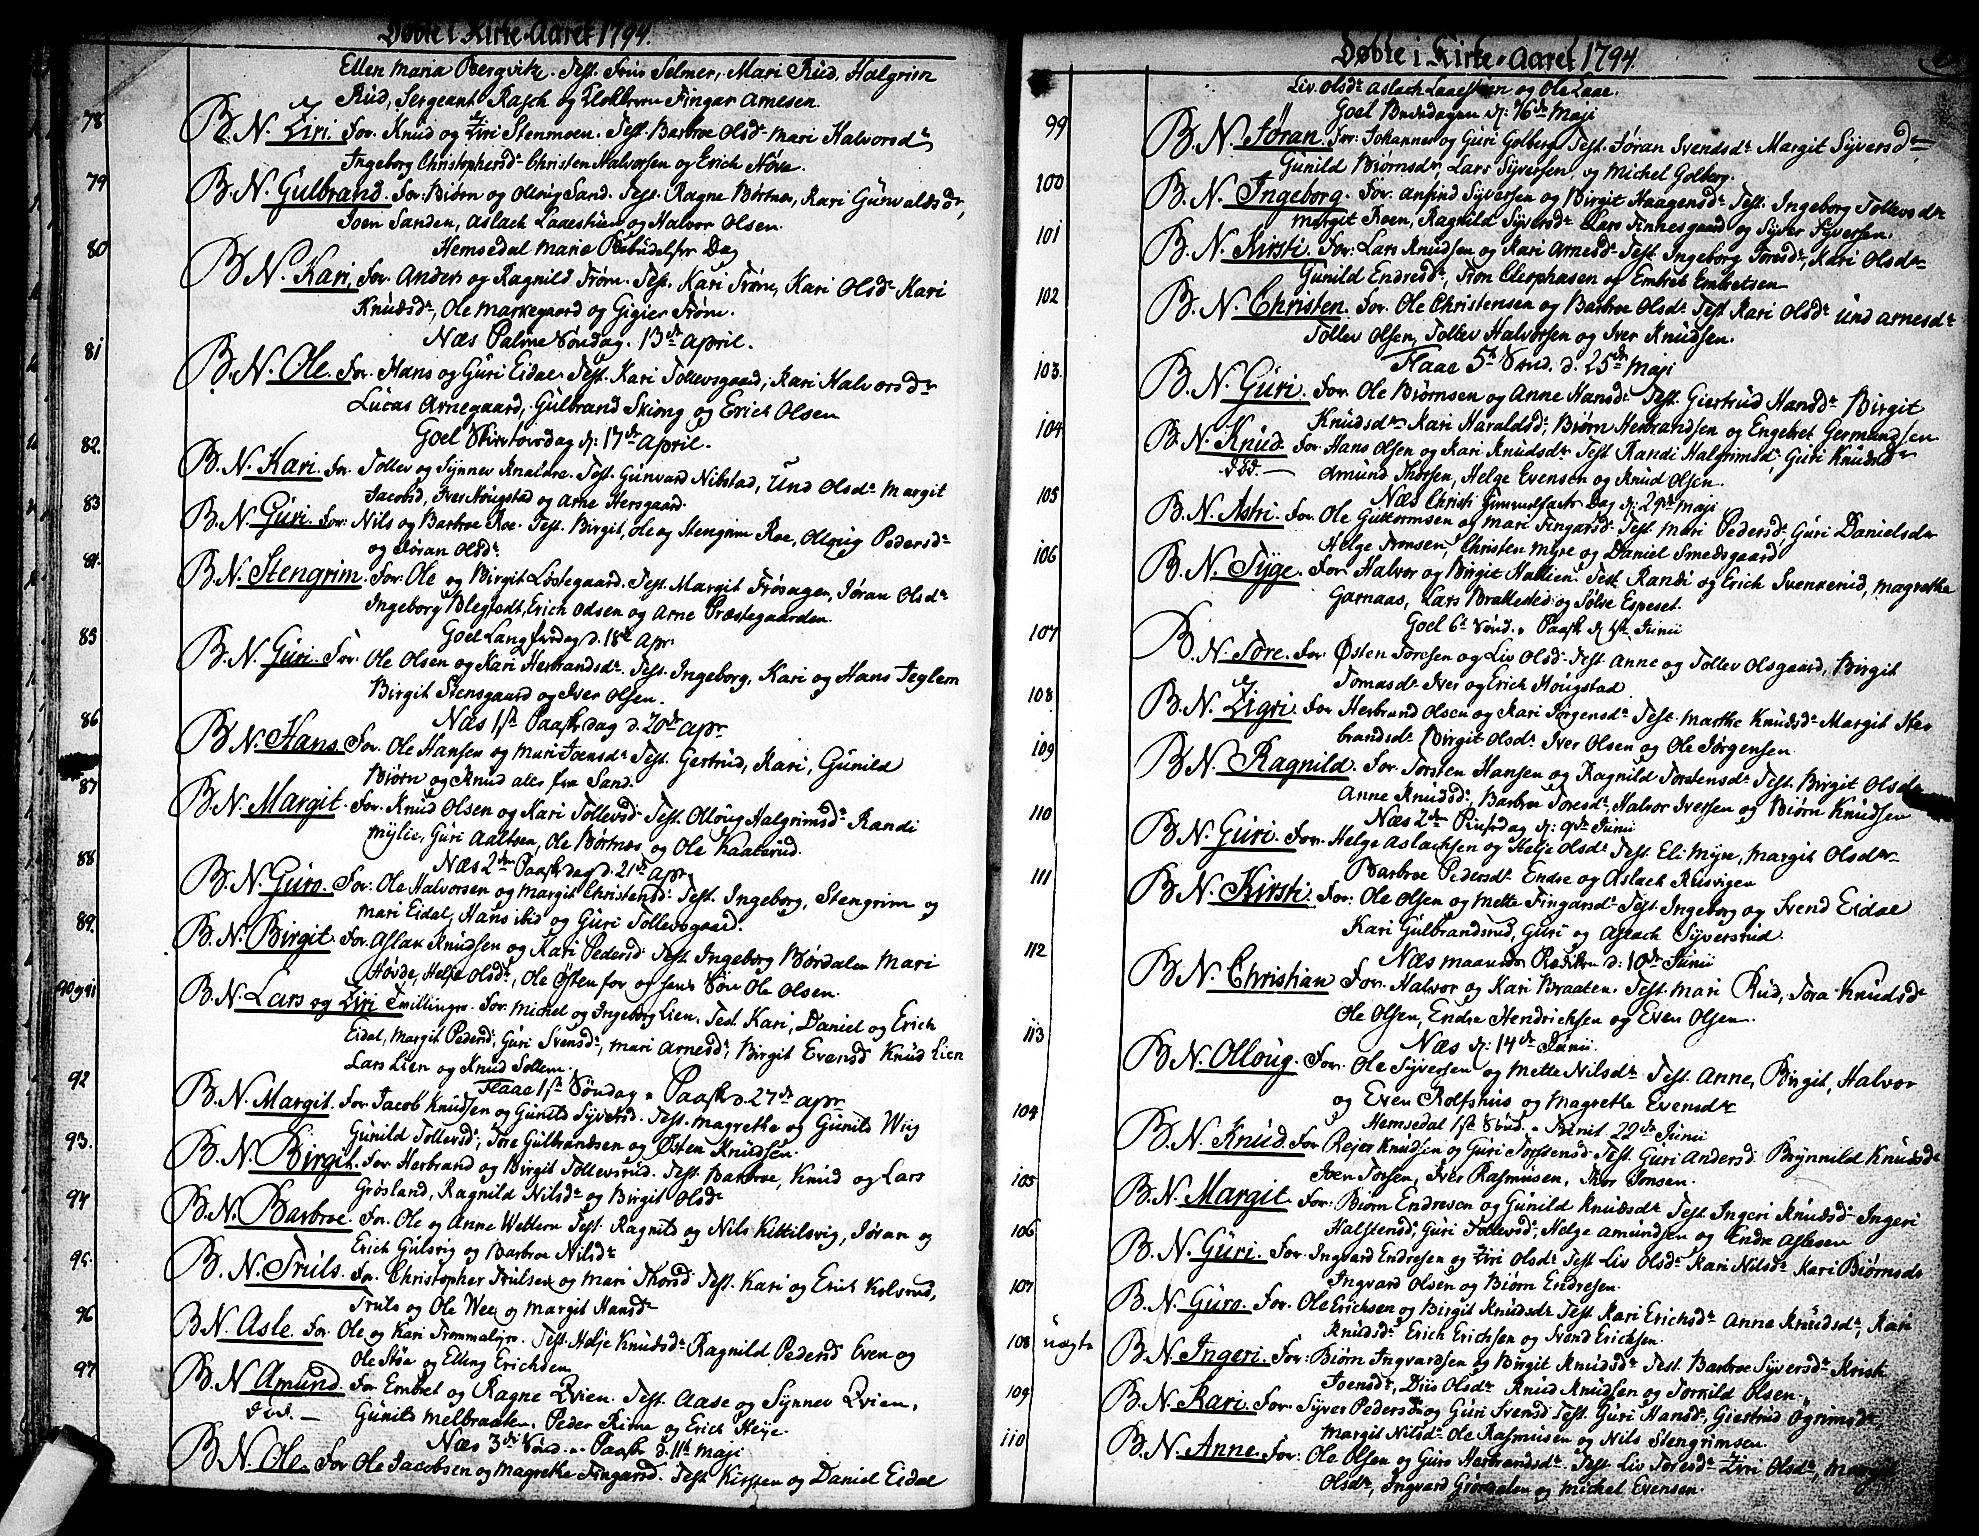 Døbte i Kirke-Aaret 1794.
Ellen Maria Bergvitz. Test. Frue Selmer, Mari Rud, Halgrim
Rud, Sergeant Rasch og Fingar Arnesen.
78 B. N. Ziri For. Knud og Ziri Stenmoen. Test. Barbroe Olsdr Mari Halvorsdr
Ingeborg Christophersdr Christen Halvorsen og Erich
79 B. N. Gulbrand. For. Biørn og Olloug Sand. Test. Ragne Børtnes, Kari Gunvaldsdr,
Joen Sanden, Aslach Laaestuen og Halvor Olsen.
Hemsedal Mariæ Dag
80 B N. Kari, For. Anders og Ragnild Trøm. Test. Kari Trøm, Kari Olsdr Kari
Knudsdr, Ole Markegaard og Gigier Trøm.
Næs Palme Søndag. 13de April.
81 B. N. Ole. For. Hans og Guri Eidal. Test. Kari Tollevsgaard, Kari Halvorsdr
Lucas Arnegaard, Gulbrand Skiong og Erich Olsen
Goel Skirtorsdag d: 17de April.
82. B. N. Kari. For. Tollev og Synnev Test. Gunvard Nibstad, Und Olsdr Margit
Jacobsd, Iver Hougstad og Arne Hersgaard.
83 B. N. Guri. For: Nils og Barbroe Roe. Test. Birgit, Ole og Stengrim Roe, Olloug Pedersdr
og Jøran Olsdr.
84. B. N. Stengrim. For: Ole og Birgit Løstegaard. Test. Margit Trøsagen, Jøran Olsdr
Ingeborg Erich Odsen og Arne Præstegaarden.
Goel Langfredag d. 18de Apr
85 B. N Guri. For. Ole Olsen og Kari Herbrandsdr. Test. Ingeborg, Kari og Hans Teglem
Birgit Stensgaard og Iver Olsen.
Næs 1ste Paaskedag d. 20de Apr
86 B N. Hans For. Ole Hansen og Mari Joensdr Test. Gertrud, Kari, Gunild
Biørn og Knud alle fra Sand.
87 B. N. Margit. For. Knud Olsen og Kari Tollevsd. Test. Olloug Halgrimsdr Randi
Mylie, Guri Aaltsen, Ole Børtnes og Ole Kaaterud.
Næs 2den Paaskedag d. 21de Apr
88 B. N. Guro. For: Ole Halvorsen og Margit Christensd. Test. Ingeborg, Stengrim og
Mari Eidal, Hans ibid og Guri Tollevsgaard.
89. B. N. Birgit. For. Aslak Knudsen og Kari Pedersd. Test. Ingeborg Børdalen Mari
Høvde, Helje Olsdr, Ole Østenfor og hens Søn Ole Olsen.
90 og 91 B. N. Lars og Ziri Tvillinger. For. Michel og Ingeborg Lien. Test. Kari, Daniel og Erich
Eidal, Margit Pedersd, Guri Svensdr, Mari Arnesdr, Birgit Evensd Knud Lien
Lars Lien og Knud
Flaae 1ste Søndag e Paask d. 27de Apr
92 B. N. Margit. For. Jacob Knudsen og Gunild Syversd. Test. Magrethe og Gunild Wiig
Gunild Tollevsd, Tore Gulbrandsen og Østen Knudsen.
93. B. N. Birgit. For Herbrand og Birgit Tollevsrud. Test. Barbroe, Knud og Lars
Grøsland, Ragnild Nilsdr og Birgit Olsdr
94 B. N. Barbroe. For. Ole og Anne Wettern Test. Ragnild og Nils Kittilsvig, Jøran og
Erich Gulsvig og Barbroe Nilsdr
95. B. N. Truls. For. Christopher Trulsen og Mari Thorsd Test. Kari og Erich Kolsrud,
Truls og Ole Wee og Margit Hansdr
96 B N. Asle. For. Ole og Kari Trommaldr. Test. Helje Knudsdr Ragnild Pedersd Even og
Ole Støa og Elling Erichsen
97 B. N Amund For Embret og Ragne Qvien. Test. Aase og Synnev Qvien,
død. Gunild Melbraaten, Peder Rime og Erich Heje.
Næs 3die Sønd. e. Paask d. 11te Maji
B N. Ole. For Ole Jacobsen og Magrethe Fingarsd. Test. Kirsten og Daniel Eidal
Døbte i Kirke-Aaret 1794.
Liv Olsdr Aslach Laaestuen og Ole Laae.
Goel Bededagen d: 16de Maji
99 B. N. Jøran For. Johannes og Guri Golberg Test. Jøran Svendsdr Margit Syversdr
Gunild Biørnsdr, Lars Syversen, og Michel Golberg.
100 B. N. Ingeborg. For. Anfind Syversen og Birgit Haagensdr Test. Ingeborg Tollevsdr
Margit Roen, Ragnild Syversdr Lars Finnesgaard og Syver Syversen.
101 B. N. Kirsti For. Lars Knudsen og Kari Arnesdr Test. Ingeborg Toresdr, Kari Olsdr
Gunild Endresdr, Tron Cleophasen og Embret Embretsen
102 B. N. Christen. For. Ole Christensen og Barbroe Olsdr Test Kari Olsdr Und Arnesdr
Tollev Olsen, Tollev Halvorsen og Iver Knudsen.
Flaae 5te Sønd. d. 25de Maji
103. B. N. Guri For. Ole Biørnsen og Anne Hansdr Test. Giertrud Hansdr Birgit
Knudsdr Kari Haraldsdr, Biørn Herbrandsen og Engebret Germundsen
104 B. N. Knud For Hans Olsen og Kari Knudsdr Test Randi Halgrimsd, Guri Knudsdr
død. Amund Thorsen, Helge Evensen og Knud Olsen.
Næs Christi Himmelfarts Dag d: 29de Maji
105 B. N. Astri. For. Ole Guttormsen og Mari Fingarsdr Test. Mari Pedersdr Guri Danielsdr
Helge Tronsen, Christen Myre og Daniel Smedsgaard
106 B. N. Tyge. For. Halvor og Birgit Hallien. Test. Randi og Erich Svenserud, Magrethe
Garnaas, Lars Bratteslet og Sølve Espeset.
Goel 6te Sønd. e Paask d 1ste Junii
107 B. N. Tore. For. Østen Toresen og Liv Olsd. Test. Anne og Tollev Olsgaard, Birgit
Tomasdr Iver og Erich Hougstad
108 B. N. Zigri. For Herbrand Olsen og Kari Jørgensdr Test. Marthe Knudsdr Margit Her
brandsdr Birgit Olsdr Iver Olsen og Ole Jørgensen.
109 B N. Ragnild. For. Torsten Hansen og Ragnild Torstensdr Test. Birgit Olsdr
Anne Knudsdr, Barbroe Toresdr, Halvor Iversen og Biørn Knudsen
Næs 2den Pinsedag d: 9de Junii
110 B. N. Guri. For. Helge Aslachsen og Helje Olsdr Test. Eli Myre, Margit Olsdr
Barbroe Pedersdr Endre og Aslach Rusvigen
111 B. N. Kirsti. For. Ole Olsen og Mette Fingarsdr Test. Ingeborg og Svend Eidal
Kari Gulbrandsrud, Guri og Aslach Syversrud.
112 Næs d: 10de Junii
B N. Christian For. Halvor og Kari Braaten. Test. Mari Rud, Tora Knudsdr
Ole Olsen, Endre Hendrichsen og Even Olsen.
Næs d: 14de Junii.
113 B N. Olloug. For. Ole Syversen og Mette Nilsdr Test. Anne, Birgit, Halvor
og Even Rolfshus og Magrethe Evensdr
Hemsedal 1ste Sønd. e Trinit 22de Junii
104 B. N. Knud. For Rejer Knudsen og Guri Torstensd. Test. Guri Andersd. Brynnild Knudsdr
Joen Torsen, Iver Rasmusen, Thor Jonsen.
105 B. N. Margit For. Biørn Endresen og Gunild Knudsdr Test. Ingeri Knudsd Ingeri
Halstensd, Guri Tollevsd, Helge Amundsen og Endre Aslesen
106 B. N. Guri. For. Ingvard Endresen og Ziri Olsdr Test Liv Olsdr Kari Nilsdr Kari Biørnsdr
Ingvard Olsen og Biørn Endresen.
107 B. N. Guro. For. Ole Erichsen og Birgit Knudsdr Test Kari Erichsdr Anne Knudsdr, Kari
Knudsdr Erich Erichsen og Svend Erichsen.
108 uægte B N. Ingeri. For. Biørn Ingvardsen og Birgit Knudsdr Test. Barbroe Syversdr Kristi
Joensdr, Olsdr Knud Knudsen og Torkild Olsen.
109 B. N. Kari. For. Syver Pedersen og Guri Svensd Test. Guri Hansdr, Giertrud Ögrimsdr
Margit Nilsdr Ole Rasmusen og Nils Stengrimsen.
110 B. N. Anne. For: Ole Olsen og Guro Herbrandsdr Test. Liv Toresdr Ziri Olsdr, Margit
Olsdr, Ingvard Grøndalen og Michel Evensen.